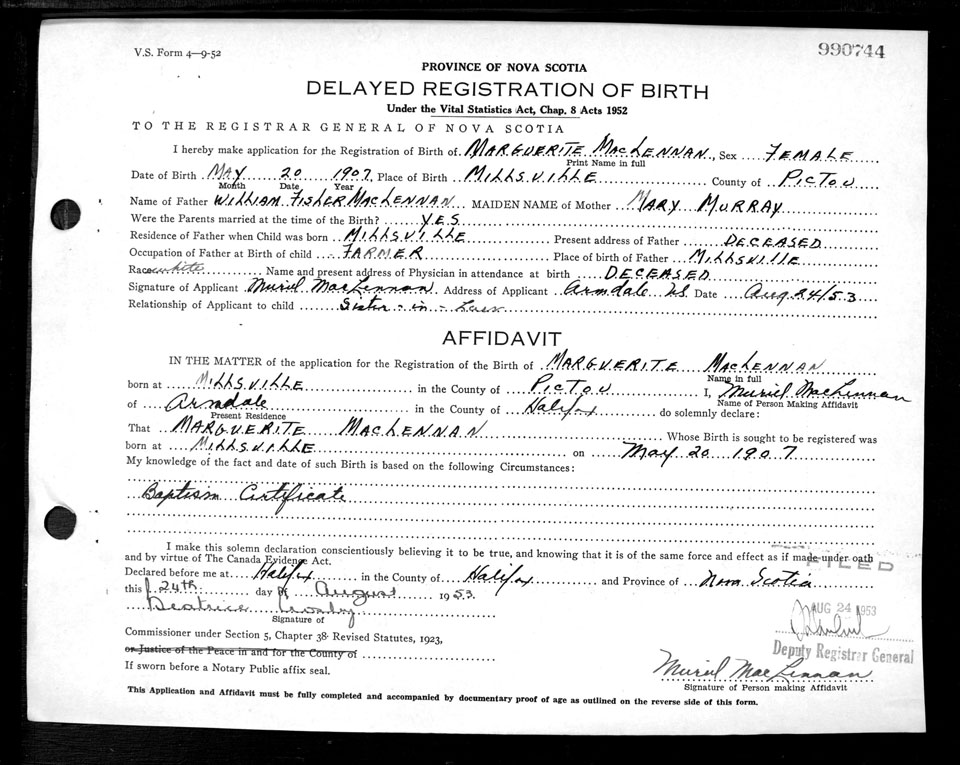 V.S. Form 4—9-52
990744
PROVINCE OF NOVA SCOTIA
DELAYED REGISTRATION OF BIRTH
Under the Vital Statistics Act, Chap. 8 Acts 1952
TO THE REGISTRAR GENERAL OF NOVA SCOTIA
I hereby make application for the Registration of Birth of MARGUERITE MACLENNAN, Sex FEMALE
Print Name in full
Date of Birth MAY 20 1907, Place of Birth MILLSVILLE County of PICTOU
Month Date Year
Name of Father WILLIAM FISHER MACLENNAN MAIDEN NAME of Mother MARY MURRAY
Were the Parents married at the time of the Birth? YES
Residence of Father when Child was born MILLSVILLE Present address of Father DECEASED
Occupation of Father at Birth of child FARMER Place of birth of Father MILLSVILLE
Race white Name and present address of Physician in attendance at birth DECEASED
Signature of Applicant Muriel MacLennan Address of Applicant Armdale NS Date Aug 24/53
Relationship of Applicant to child Sister-in-Law
AFFIDAVIT
IN THE MATTER of the application for the Registration of the Birth of MARGUERITE MACLENNAN
Name in full
born at MILLSVILLE in the County of PICTOU I, Muriel MacLennan
Name of Person Making Affidavit
of Armdale in the County of Halifax do solemnly declare:
Present Residence
That MARGUERITE MACLENNAN Whose Birth is sought to be registered was
born at MILLSVILLE on May 20 1907
My knowledge of the fact and date of such Birth is based on the following Circumstances:
Baptism Certificate
I make this solemn declaration conscientiously believing it to be true, and knowing that it is of the same force and effect as if made under oath
and by virtue of The Canada Evidence Act.
FILED
Declared before me at Halifax in the County of Halifax and Province of Nova Scotia
this 24th day of August 1953.
AUG 24 1953
Beatrice Crosby
Signature of
Commissioner under Section 5, Chapter 38 Revised Statutes, 1923,
or Justice of the Peace in and for the County of
Deputy Registrar General
If sworn before a Notary Public affix seal.
Muriel MacLennan
Signature of Person making Affidavit
This Application and Affidavit must be fully completed and accompanied by documentary proof of age as outlined on the reverse side of this form.